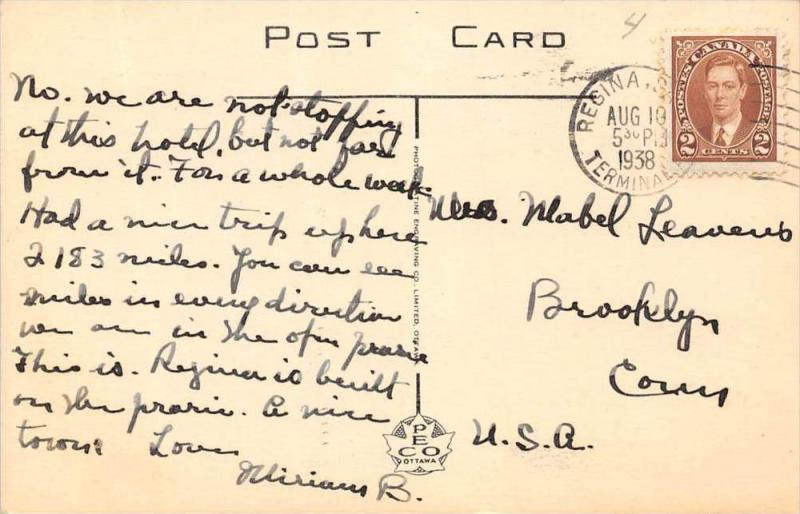 POST CARD
4
REGINA, S
AUG 10
5 30 PM
1938
TERMINAL
POSTES CANADA POSTAGE
2 CENTS 2
No. we are not stopping
at this hotel, but not far
from it. For a whole week.
Had a nice trip up here
2183 miles. You can see
miles in every direction
we are in the open prarie
This is. Regina is built
on the prarie. A nice
town. Love
Miriam B.
Mrs. Mabel Leavens
Brooklyn
Conn
U.S.A.
PHOTOGELATINE ENGRAVING CO., LIMITED, OTTAWA
PECO
OTTAWA